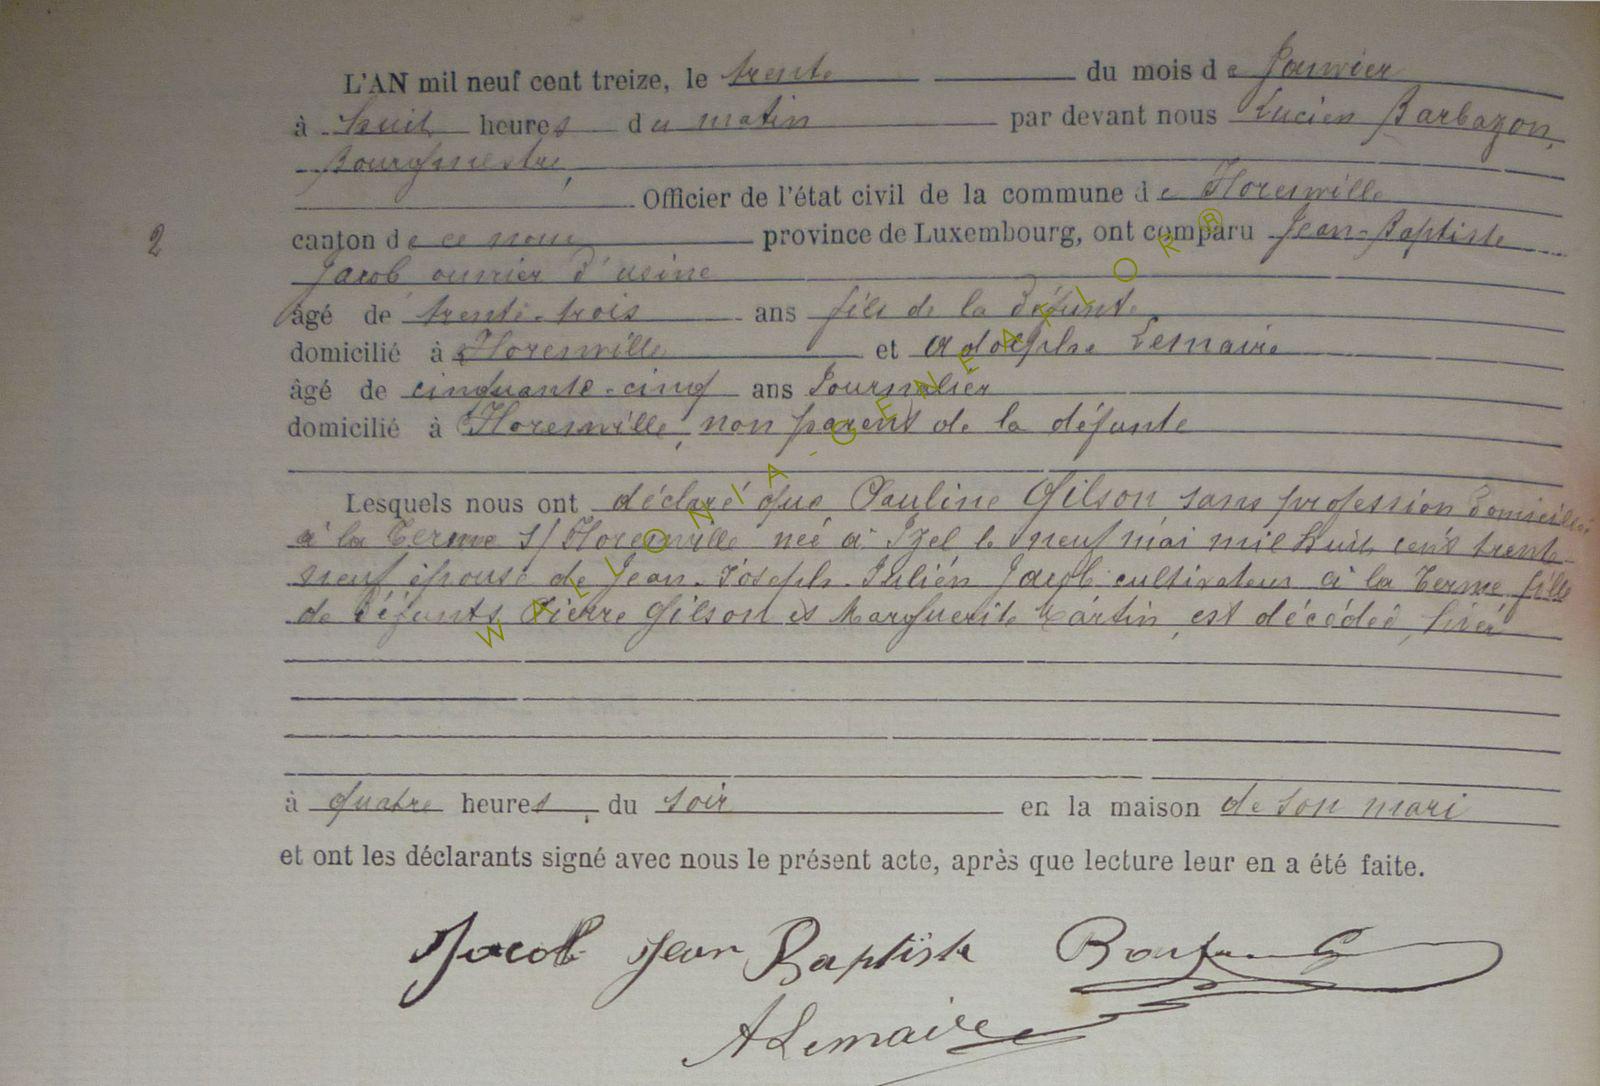 L'AN mil neuf cent treize, le trente du mois de Janvier
à huit heures du matin par devant nous Lucien Barbazon,
Bourgmestre,
Officier de l'état civil de la commune de Florenville
2 canton de ce nom province de Luxembourg, ont comparu Jean-Baptiste
Jacob ouvrier d'usine
âgé de trente-trois ans fils de la défunte
domicilié à Florenville et Adolphe Lemaire
âgé de cinquante-cinq ans Journalier
domicilié à Florenville, non parent de la défunte
Lesquels nous ont déclaré que Pauline Gilson sans profession domiciliée
à la Terme s/ Florenville née à Izel le neuf mai mil huit cent trente-
neuf épouse de Jean-Joseph-Julien Jacob cultivateur à la Terme fille
de défunts Pierre Gilson et Marguerite Martin, est décédée, hier
à quatre heures du soir en la maison de son mari
et ont les déclarants signé avec nous le présent acte, après que lecture leur en a été faite.
Jacob Jean Baptiste
A Lemaire
WALLONIA-GENEALOR®